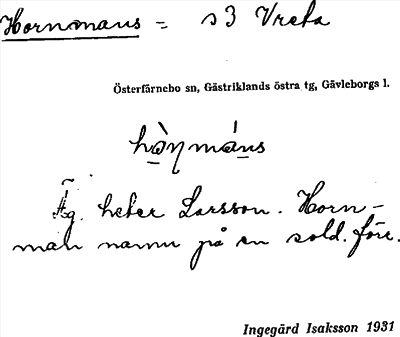 Hornmans = s3 Vreta
Österfärnebo sn, Gästriklands östra tg, Gävleborgs l.
hɷ̀ηmáns
Äg. heter Larsson. Horn-
man namn på en sold. före.
Ingegärd Isaksson 1931